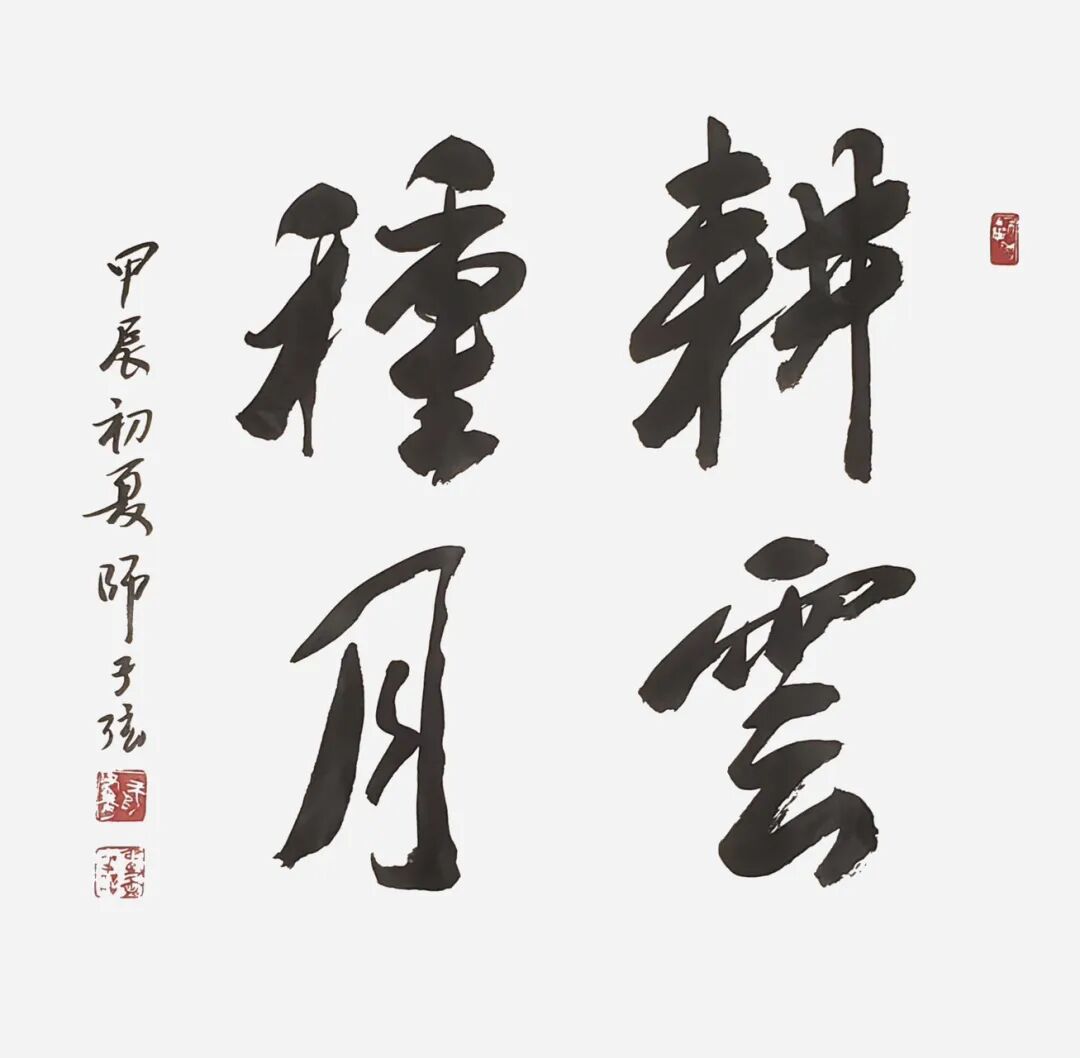 耕雲
種月
甲辰初夏師子弦